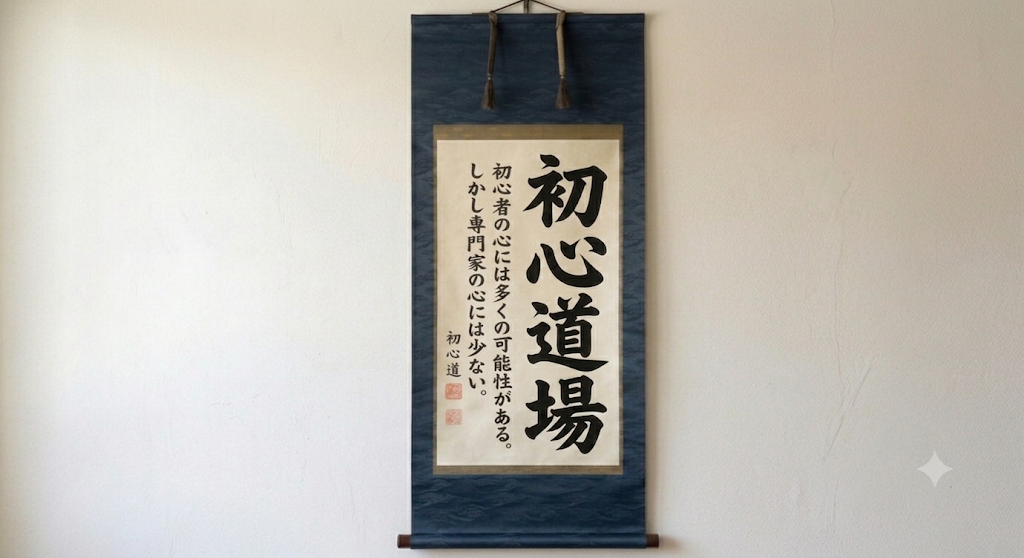 初心道場
初心者の心には多くの可能性がある。
しかし専門家の心には少ない。
初心道